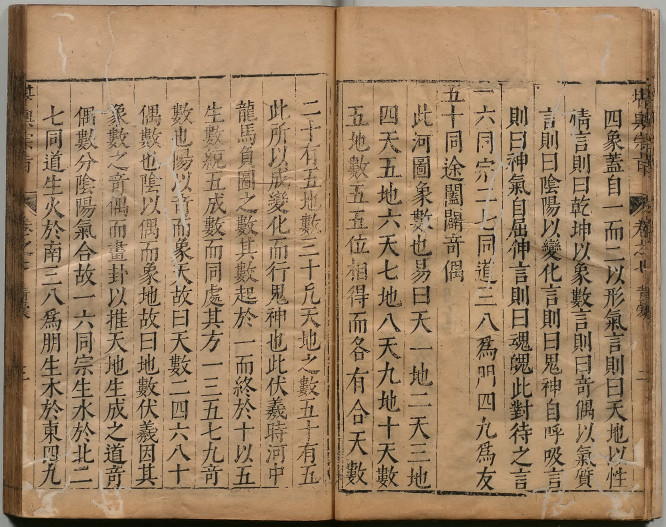 四象蓋自一而二以形氣言則曰天地以性
情言則曰乾坤以象數言則曰奇偶以氣質
言則曰陰陽以變化言則曰鬼神自呼吸言
則曰神氣自屈伸言則曰魂魄此對待之言
一六同宗二七同道三八為門四九為友
五十同途闔闢奇偶
此河圖象數也易曰天一地二天三地
四天五地六天七地八天九地十天數
五地數五五位相得而各有合天數
二十有五地數三十凡天地之數五十有五
此所以成變化而行鬼神也此伏羲時河中
龍馬負圖之數其數起於一而終於十以五
生數統五成數而同處其方一三五七九奇
數也陽以奇而象天故曰天數二四六八十
偶數也陰以偶而象地故曰地數伏羲因其
象數之奇偶而畫卦以推天地生成之道奇
偶數分陰陽氣合故一六同宗生水於北二
七同道生火於南三八為朋生木於東四九